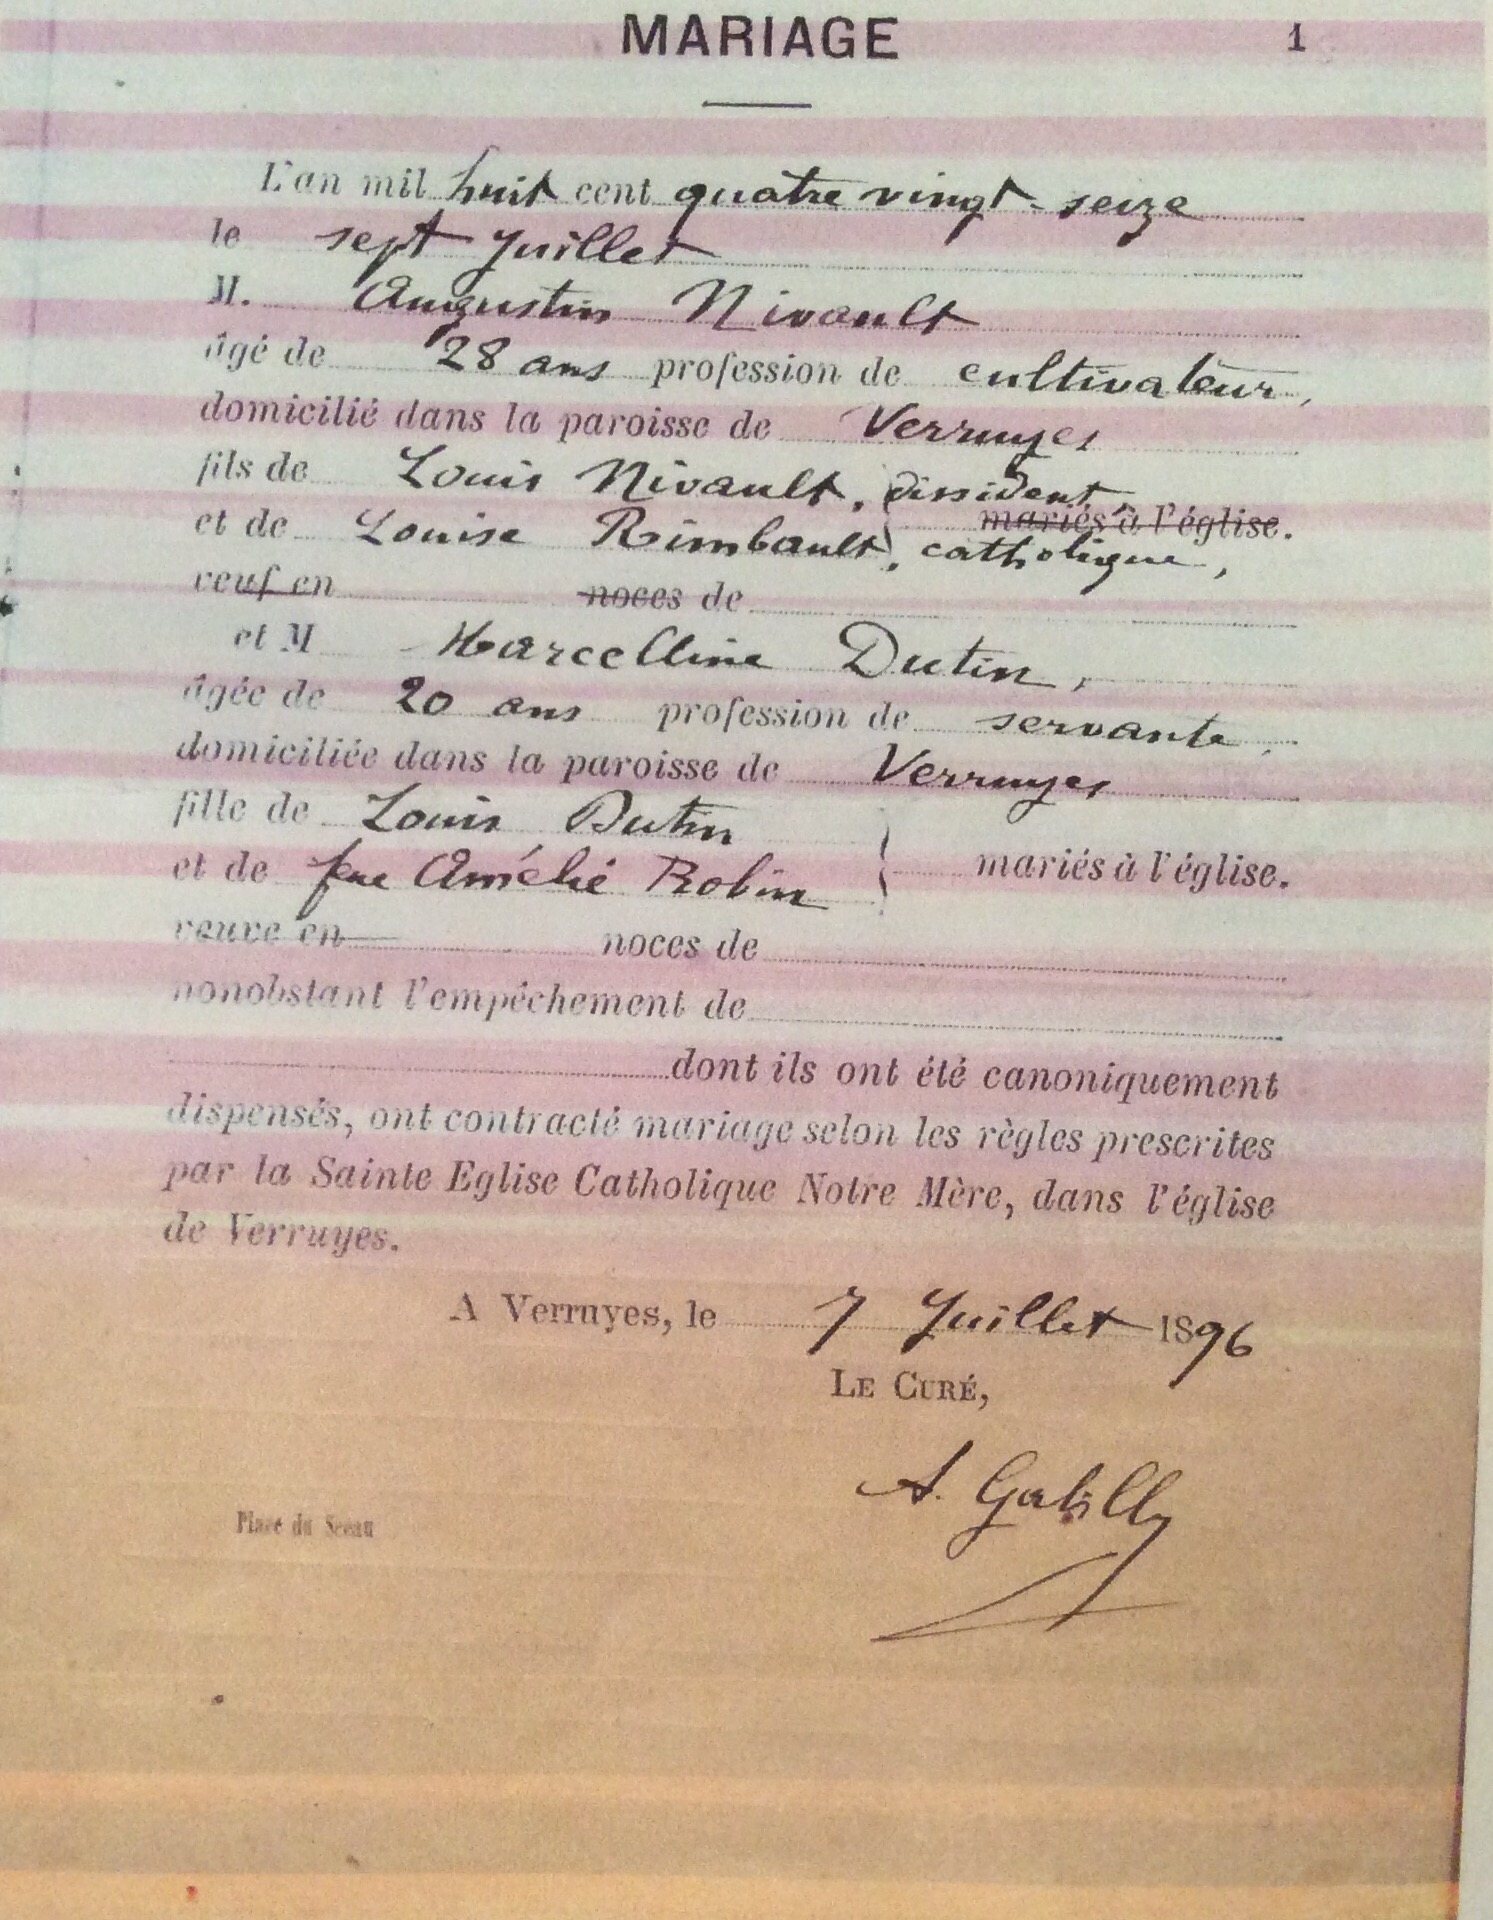 MARIAGE 1
L'an mil huit cent quatre vingt-seize
le sept Juillet
M. Augustin Nivault
âgé de 28 ans profession de cultivateur,
domicilié dans la paroisse de Verruyes
fils de Louis Nivault, dissident,
mariés à l'église.
et de Louise Rimbault, catholique,
veuf en noces de
et M Marcelline Dutin,
âgée de 20 ans profession de servante,
domiciliée dans la paroisse de Verruyes
fille de Louis Dutin
et de feue Amélie Robin } mariés à l'église.
veuve en noces de
nonobstant l'empêchement de
dont ils ont été canoniquement
dispensés, ont contracté mariage selon les règles prescrites
par la Sainte Eglise Catholique Notre Mère, dans l'église
de Verruyes.
A Verruyes, le 7 Juillet 1896
LE CURÉ,
A. Gabilly
Place du Sceau